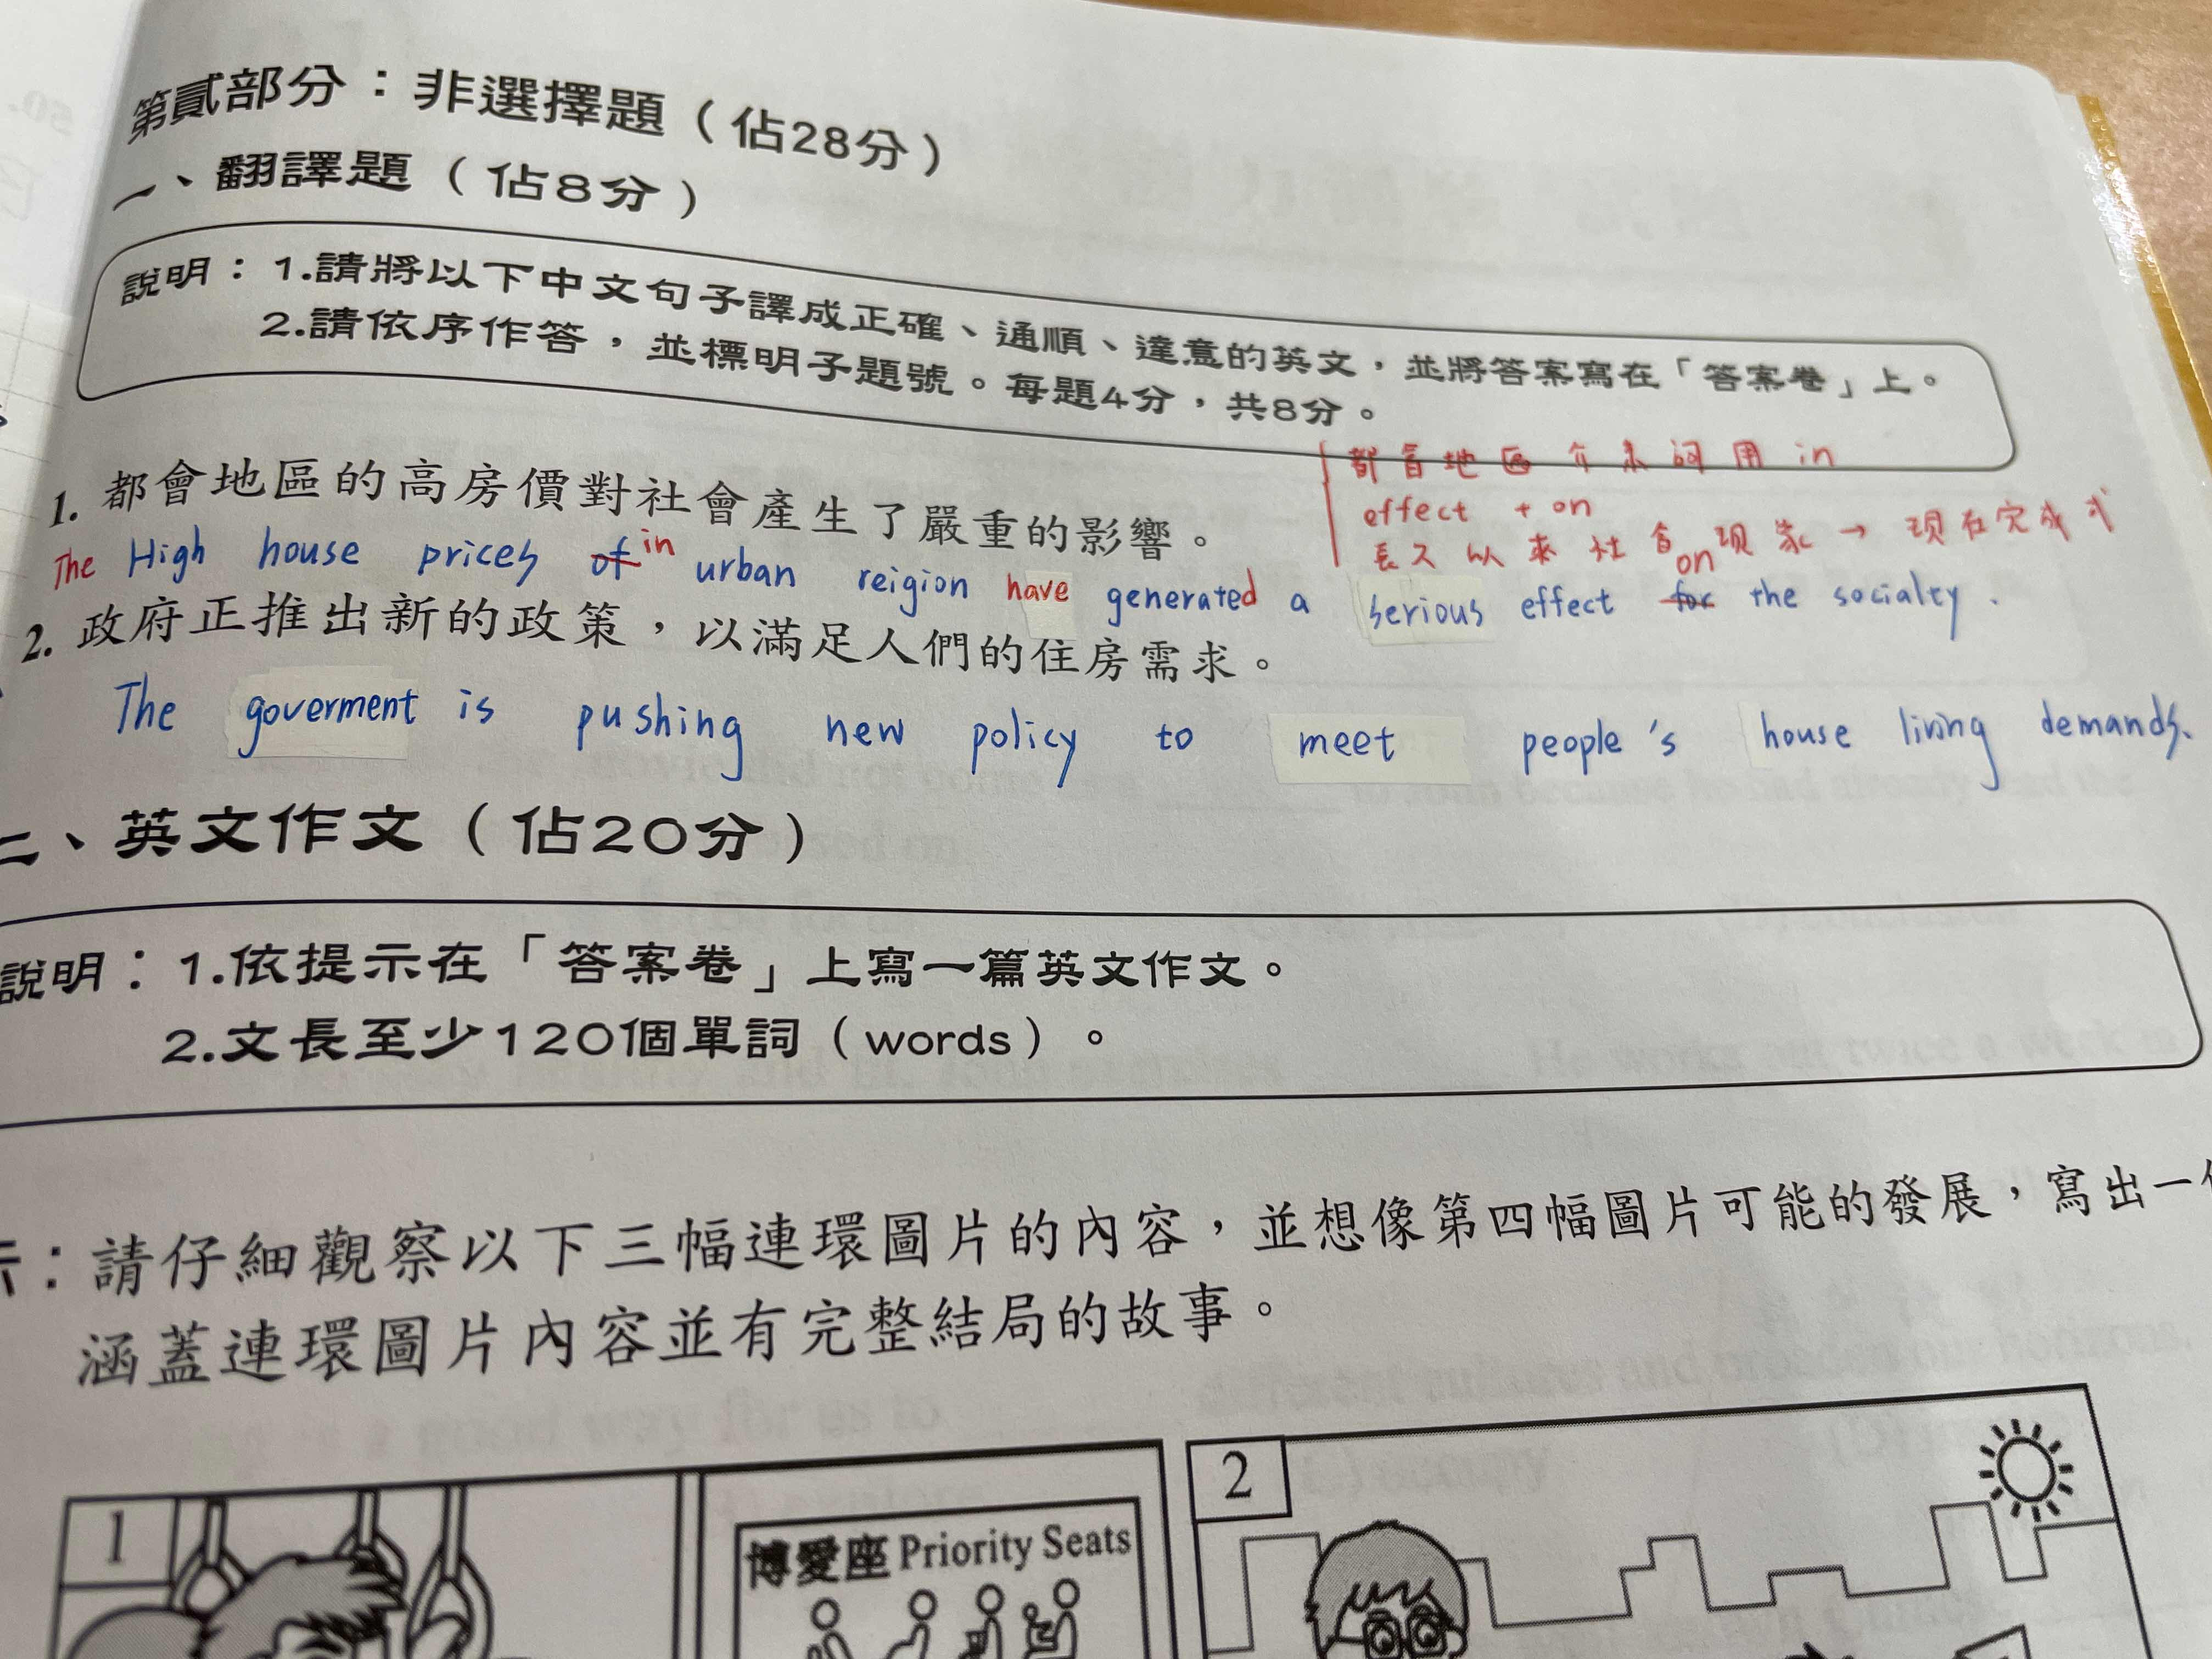 第貳部分：非選擇題（佔28分）
一、翻譯題（佔8分）
說明：1.請將以下中文句子譯成正確、通順、達意的英文，並將答案寫在「答案卷」上。
2.請依序作答，並標明子題號。每題4分，共8分。
都會地區介系詞用 in
effect + on
長久以來社會現象→現在完成式
1. 都會地區的高房價對社會產生了嚴重的影響。
The High house prices of in urban reigion have generated a serious effect for on the socialty.
2. 政府正推出新的政策，以滿足人們的住房需求。
The goverment is pushing new policy to meet people's house living demands.
二、英文作文（佔20分）
說明：1.依提示在「答案卷」上寫一篇英文作文。
2.文長至少120個單詞（words）。
示：請仔細觀察以下三幅連環圖片的內容，並想像第四幅圖片可能的發展，寫出一
涵蓋連環圖片內容並有完整結局的故事。
1
博愛座 Priority Seats
2